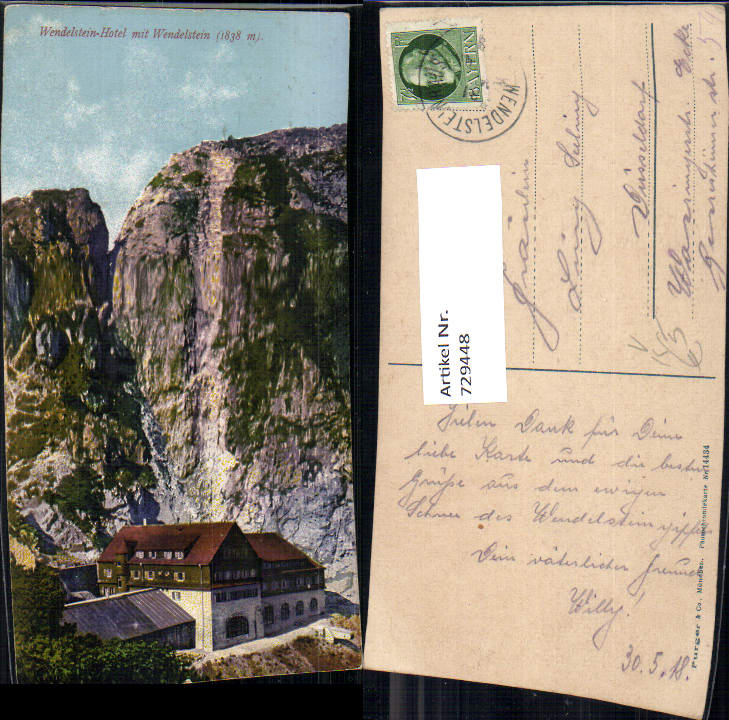 Wendelstein-Hotel mit Wendelstein (1838 m).
BAYERN
7½
WENDELSTEIN
Artikel Nr.
729448
Fräulein
Düsseldorf
Vielen Dank für Deine
liebe Karte und die besten
Grüße aus dem ewigen
Schnee des Wendelsteingipfels
Dein väterlicher Freund
Willy!
30.5.18.
Purger & Co., München. Photochromiekarte No. 14434